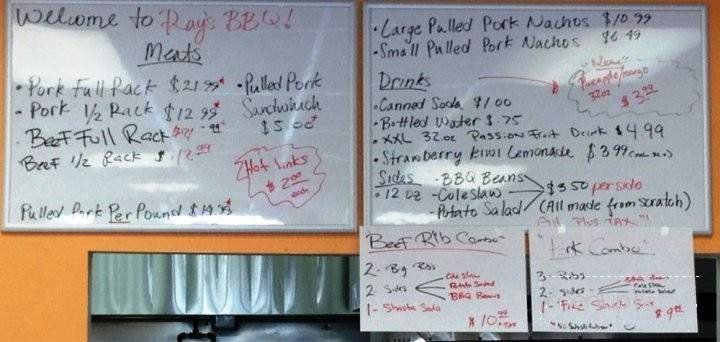 Welcome to Ray's BBQ!
Meats
• Pork Full Rack $21.99*
• Pork 1/2 Rack $12.99*
• Beef Full Rack
Beef 1/2 Rack $
• Pulled Pork
Sandwhich
$5.00*
Hot Links
$2.00
each
Pulled Pork Per Pound $14.99*
• Large Pulled Pork Nachos $10.99
• Small Pulled Pork Nachos $6.49
"New"
Pineapple/mango
32oz
$3.99
Drinks
• Canned Soda $1.00
• Bottled Water $.75
• XXL 32oz Passion Fruit Drink $4.99
• Strawberry Kiwi Lemonade $3.99
Sides
• 12 oz
- BBQ Beans
- Coleslaw
- Potato Salad
$3.50 per side
(All made from scratch)
Plus TAX"!!
Beef Rib Combo"
2- Big Ribs
2- Sides
Cole Slaw
Potato Salad
BBQ Beans
1- Shasta Soda
$10.99 +TAX
"Pork Combo"
3- Ribs
2- Sides
Coleslaw
Potato Salad
1- Free
$9.99
"No Substitution"